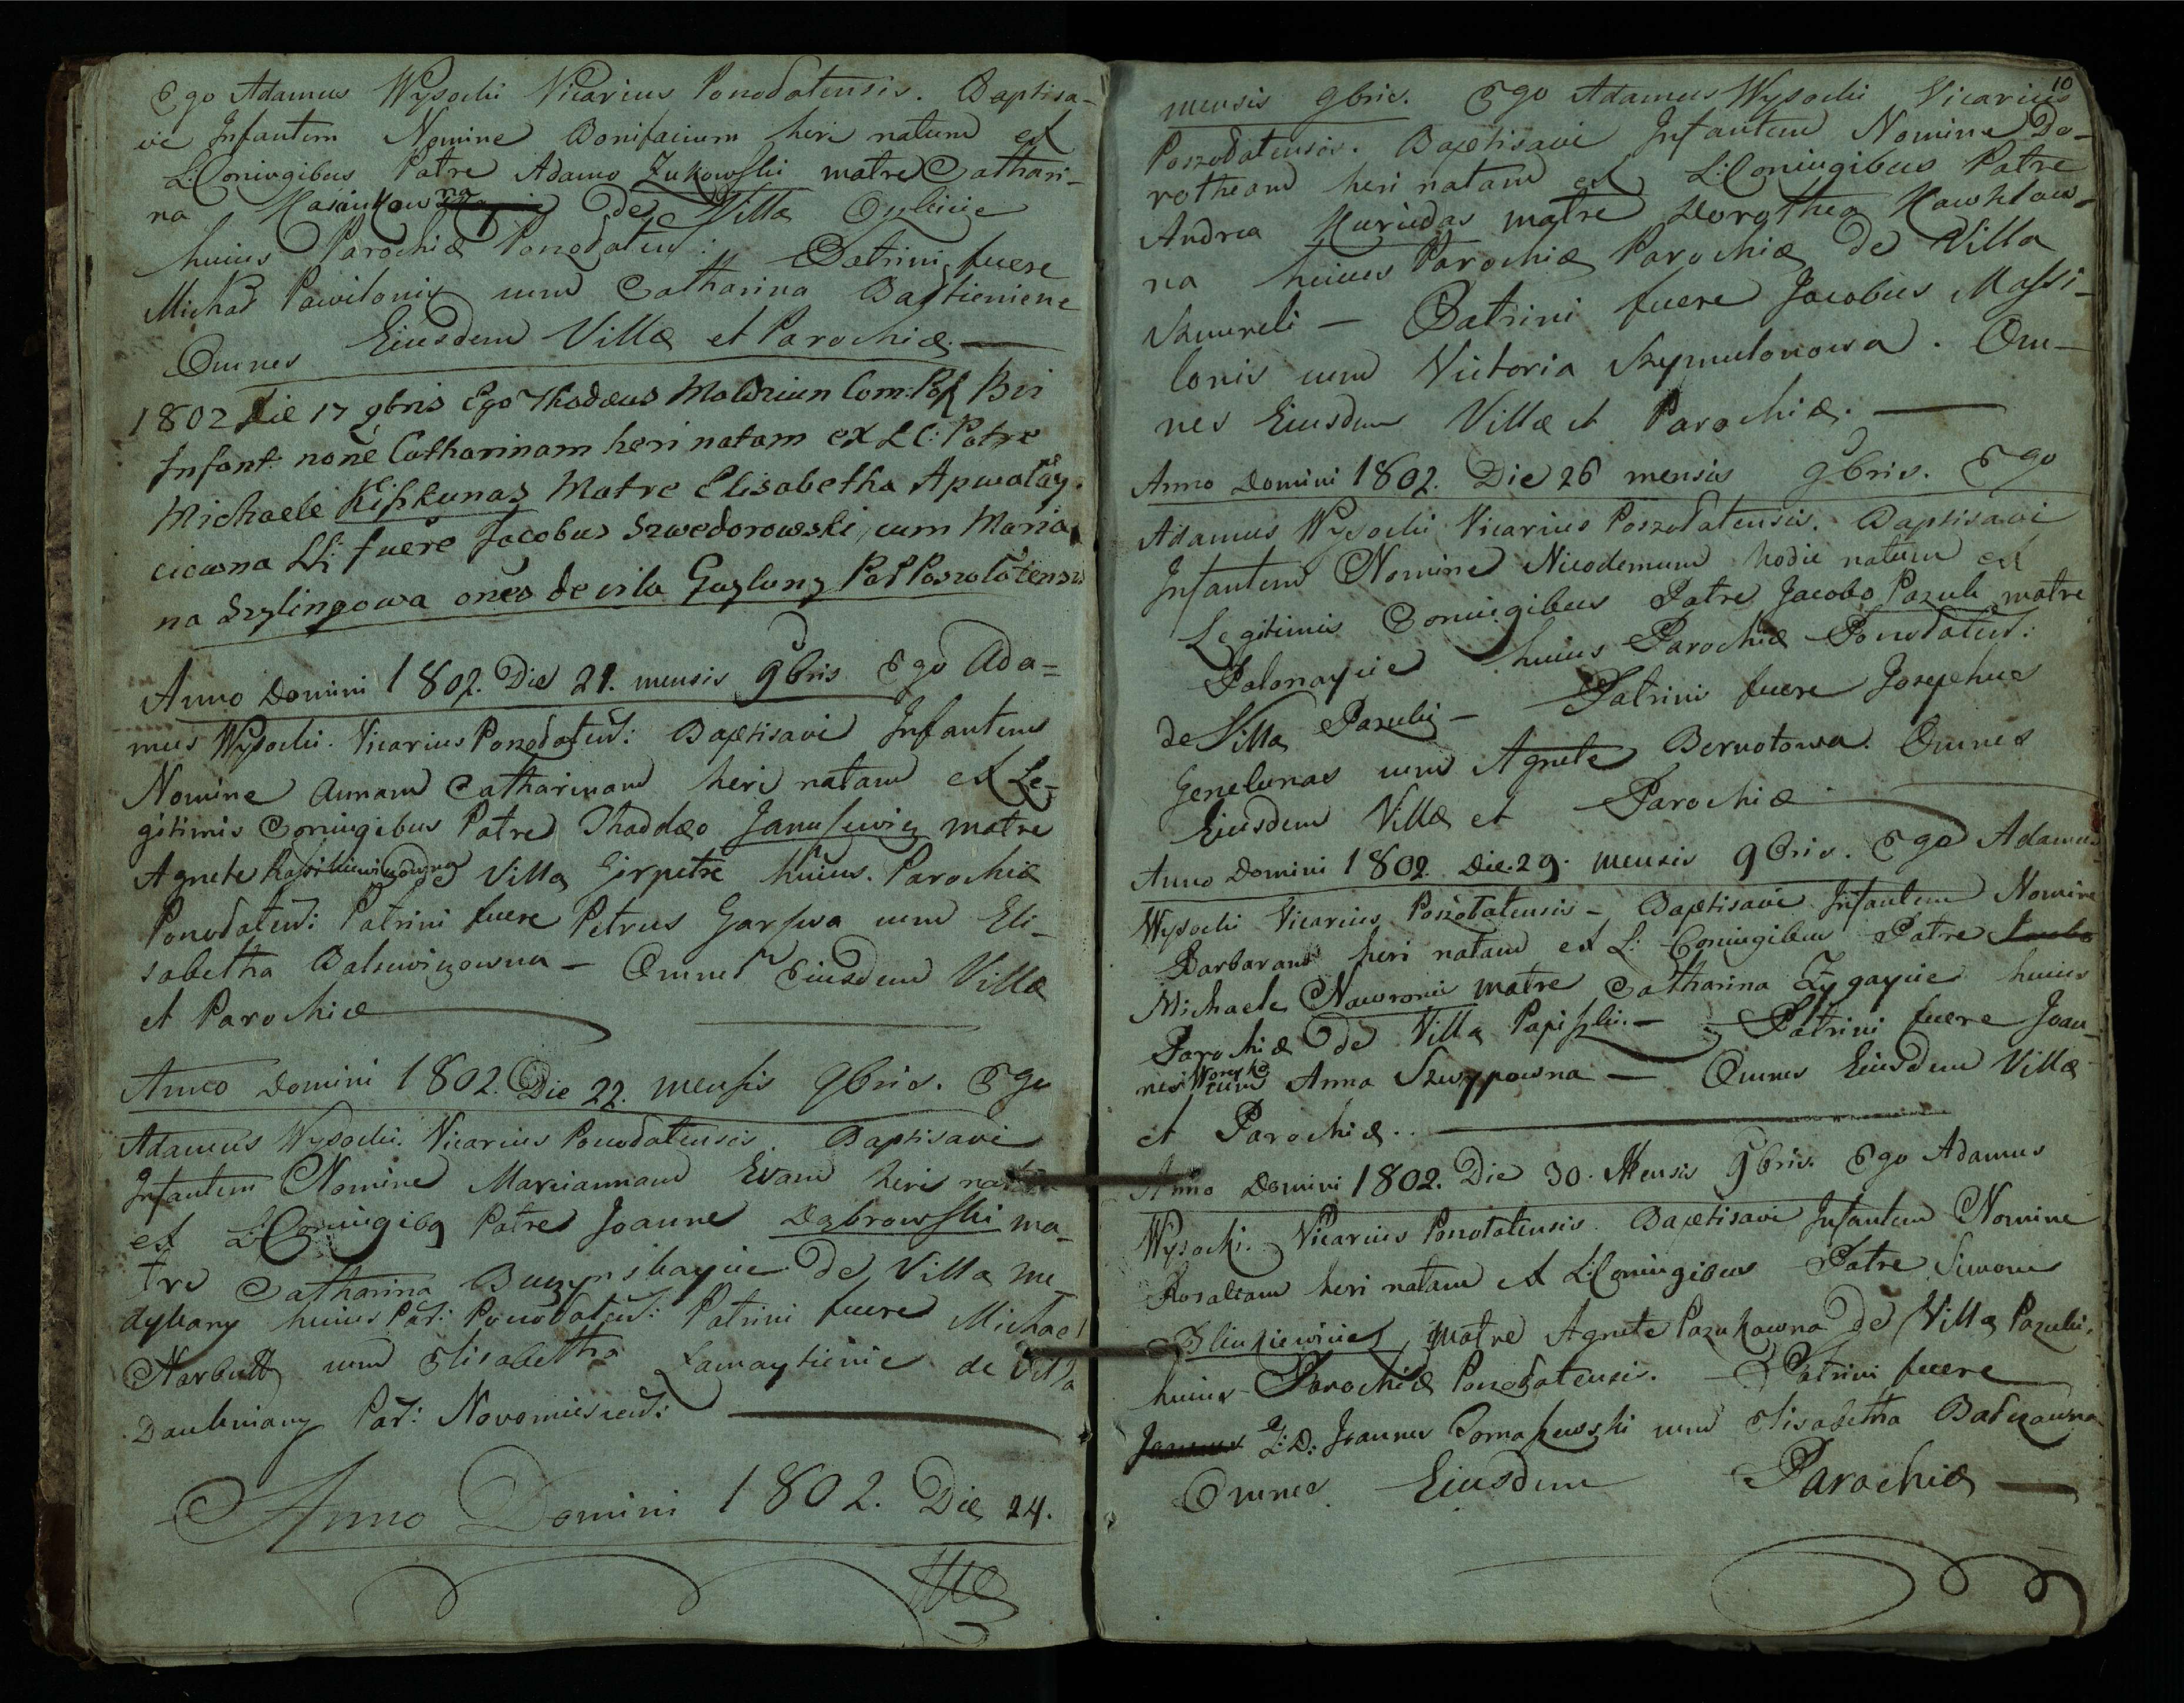 Ego Adamus Wysocki Vicarius Poszodatensis. Baptisa-
vi Infantem Nomine Bonifacium heri natum ex
L: Coniugibus Patre Adamo Zukowski matre Cathari-
na de Villa
huius Parochiæ Poszodaten: Patrini fuere
Michał Pawilonis cum Catharina Bastieniene
Omnes Eiusdem Villæ et Parochiæ. —
1802 Die 17 9bris Ego Thadæus Moldziun Com: Pos Bvi
Infant: noñe Catharinam heri natam ex LC: Patre
Michaele Kiszkunas Matre Elisabetha Apwalay-
ciowna LL: fuere Jacobus Szwedorowski, cum Maria-
na Szylingowa oñes de vila Guzluny Par Poszolatensis
Anno Domini 1802. Die 21. mensis 9bris Ego Ada=
mus Wysocki. Vicarius Poszodaten: Baptisavi Infantem
Nomine Annam Catharinam heri natam ex Le-
gitimis Coniugibus Patre Thaddæo Janusewicz matre
Agnete de Villa Girpetre huius. Parochiæ
Poszodaten: Patrini fuere Petrus Garszwa cum Eli-
sabetha Balsewiczowna — Omnes Eiusdem Villæ
et Parochiæ
Anno Domini 1802. Die 22. mensis 9bris. Ego
Adamus Wysocki. Vicarius Poszodatensis. Baptisavi
Infantem Nomine Mariannam Evam heri natam
ex L: Coniugibq Patre Joanne Dąbrowski ma-
tre Catharina de Villa Me-
dykany huius Par: Poszodaten: Patrini fuere Michael
Narbutt cum Elisabetha de Villa
Daukniany Par: Novomiescen:
Anno Domini 1802. Die 24.
10
mensis 9bris. Ego Adamus Wysocki Vicarius
Poszodatensis. Baptisavi Infantem Nomine Do-
rotheam heri natam ex L: Coniugibus Patre
Andrea Kuriedas matre Dorothea
na huius Parochiæ Parochiæ de Villa
Skiureli — Patrini fuere Jacobus Massi-
lonis cum Victoria Szymulonowa. Om-
nes Eiusdem Villæ et Parochiæ. —
Anno Domini 1802. Die 26 mensis 9bris. Ego
Adamus Wysocki Vicarius Poszodatensis. Baptisavi
Infantem Nomine Nicodemum hodie natum ex
Legitimis Coniugibus Patre Jacobo Pazuk matre
huius Parochiæ Poszodaten:
de Villa Pazuki — Patrini fuere Josephus
Genelunas cum Agnete Bernotowa. Omnes
Eiusdem Villæ et Parochiæ
Anno Domini 1802. Die. 29. mensis 9bris. Ego Adamus
Wysocki Vicarius Poszodatensis — Baptisavi Infantem Nomine
Barbaram heri natam ex L: Coniugibus Patre
Michaele Nawronis matre Catharina Zygaycie huius
Parochiæ de Villa Papiszki. — Patrini fuere Joan-
nes cum Anna SzwyPowna — Omnes Eiusdem Villæ
et Parochiæ..
Anno Domini 1802. Die 30. Mensis 9bris. Ego Adamus
Wysocki. Vicarius Poszodatensis. Baptisavi Infantem Nomine
Rosaliam heri natam ex L: Coniugibus Patre Simone
matre Agnete Pazukowna de Villa Pazuki.
huius Parochiæ Poszodatensis. Patrini fuere
G: D: Joannes Tomaszewski cum Elisabetha
Omnes Eiusdem Parochiæ —